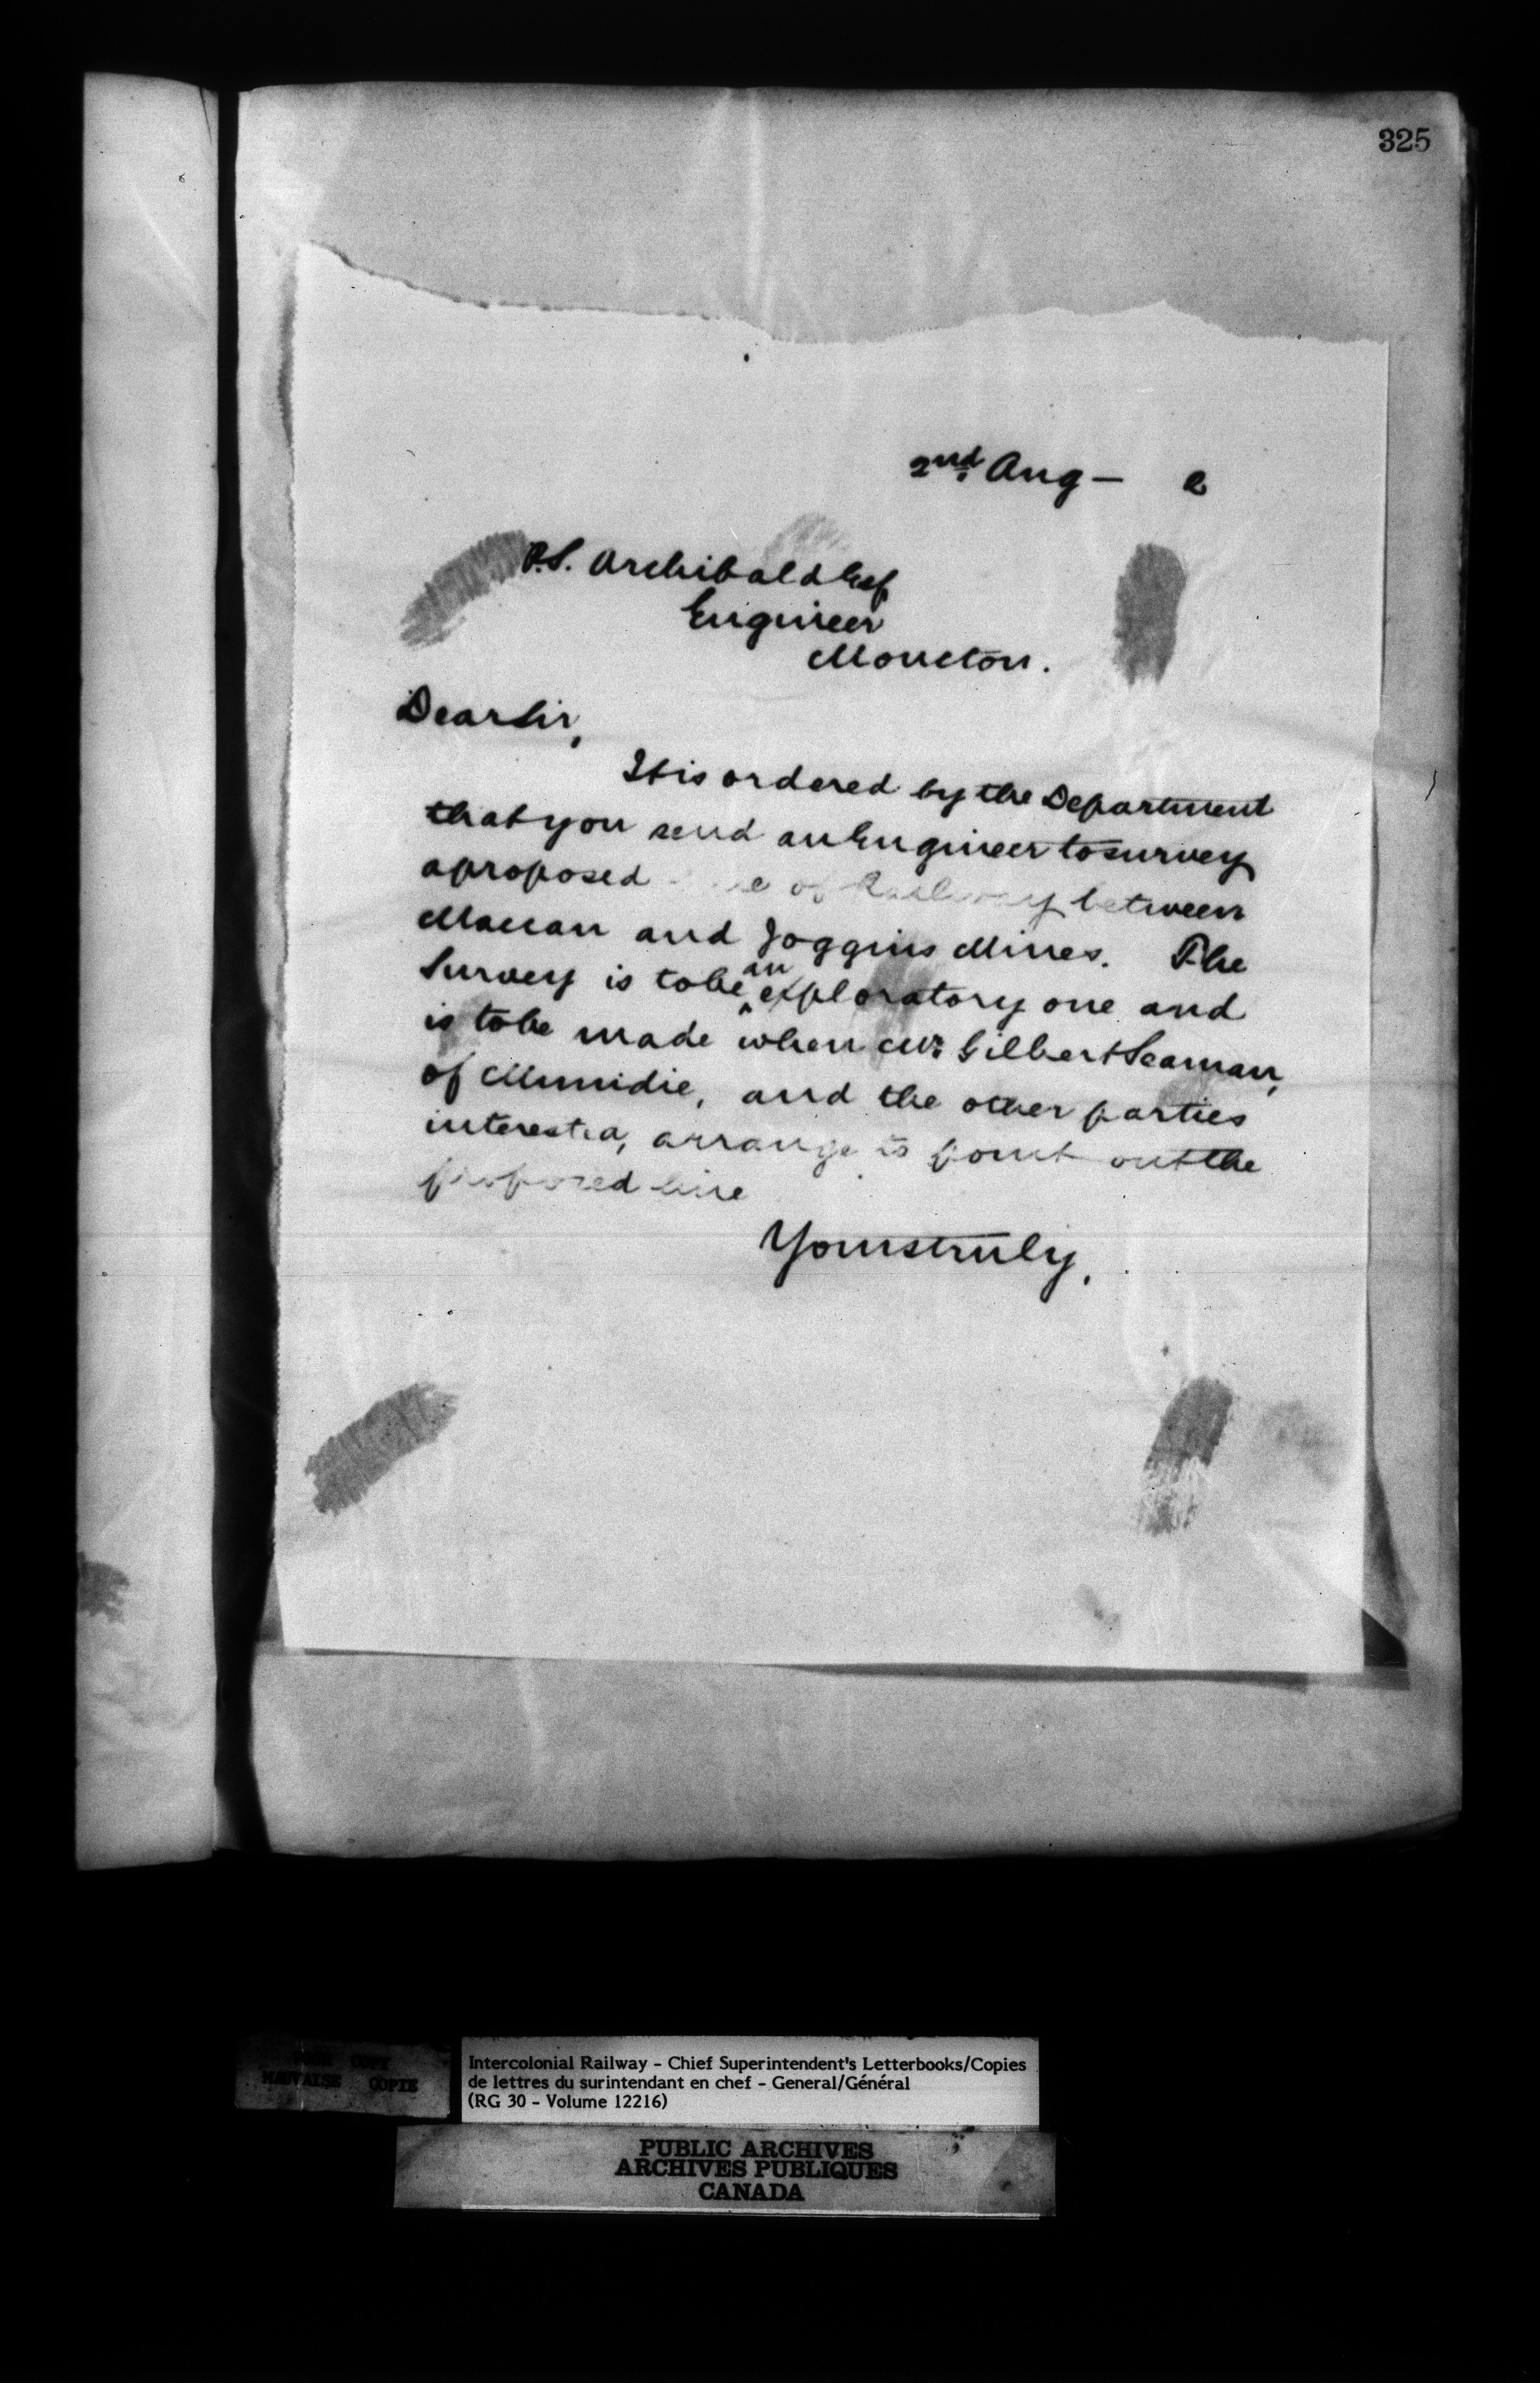 325
2nd. Aug — 2
P.S. Archibald Esq
Engineer
Moncton.
Dear Sir,
It is ordered by the Department
that you send an Engineer to survey
a proposed line of Railway between
Maccan and Joggins Mines. The
Survey is to be an exploratory one and
is to be made when Mr. Gilbert Seaman,
of Minudie, and the other parties
interested, arrange to point out the
proposed line
Yours truly,
COPY
MAUVAISE COPIE
Intercolonial Railway - Chief Superintendent's Letterbooks/Copies
de lettres du surintendant en chef - General/Général
(RG 30 - Volume 12216)
PUBLIC ARCHIVES
ARCHIVES PUBLIQUES
CANADA